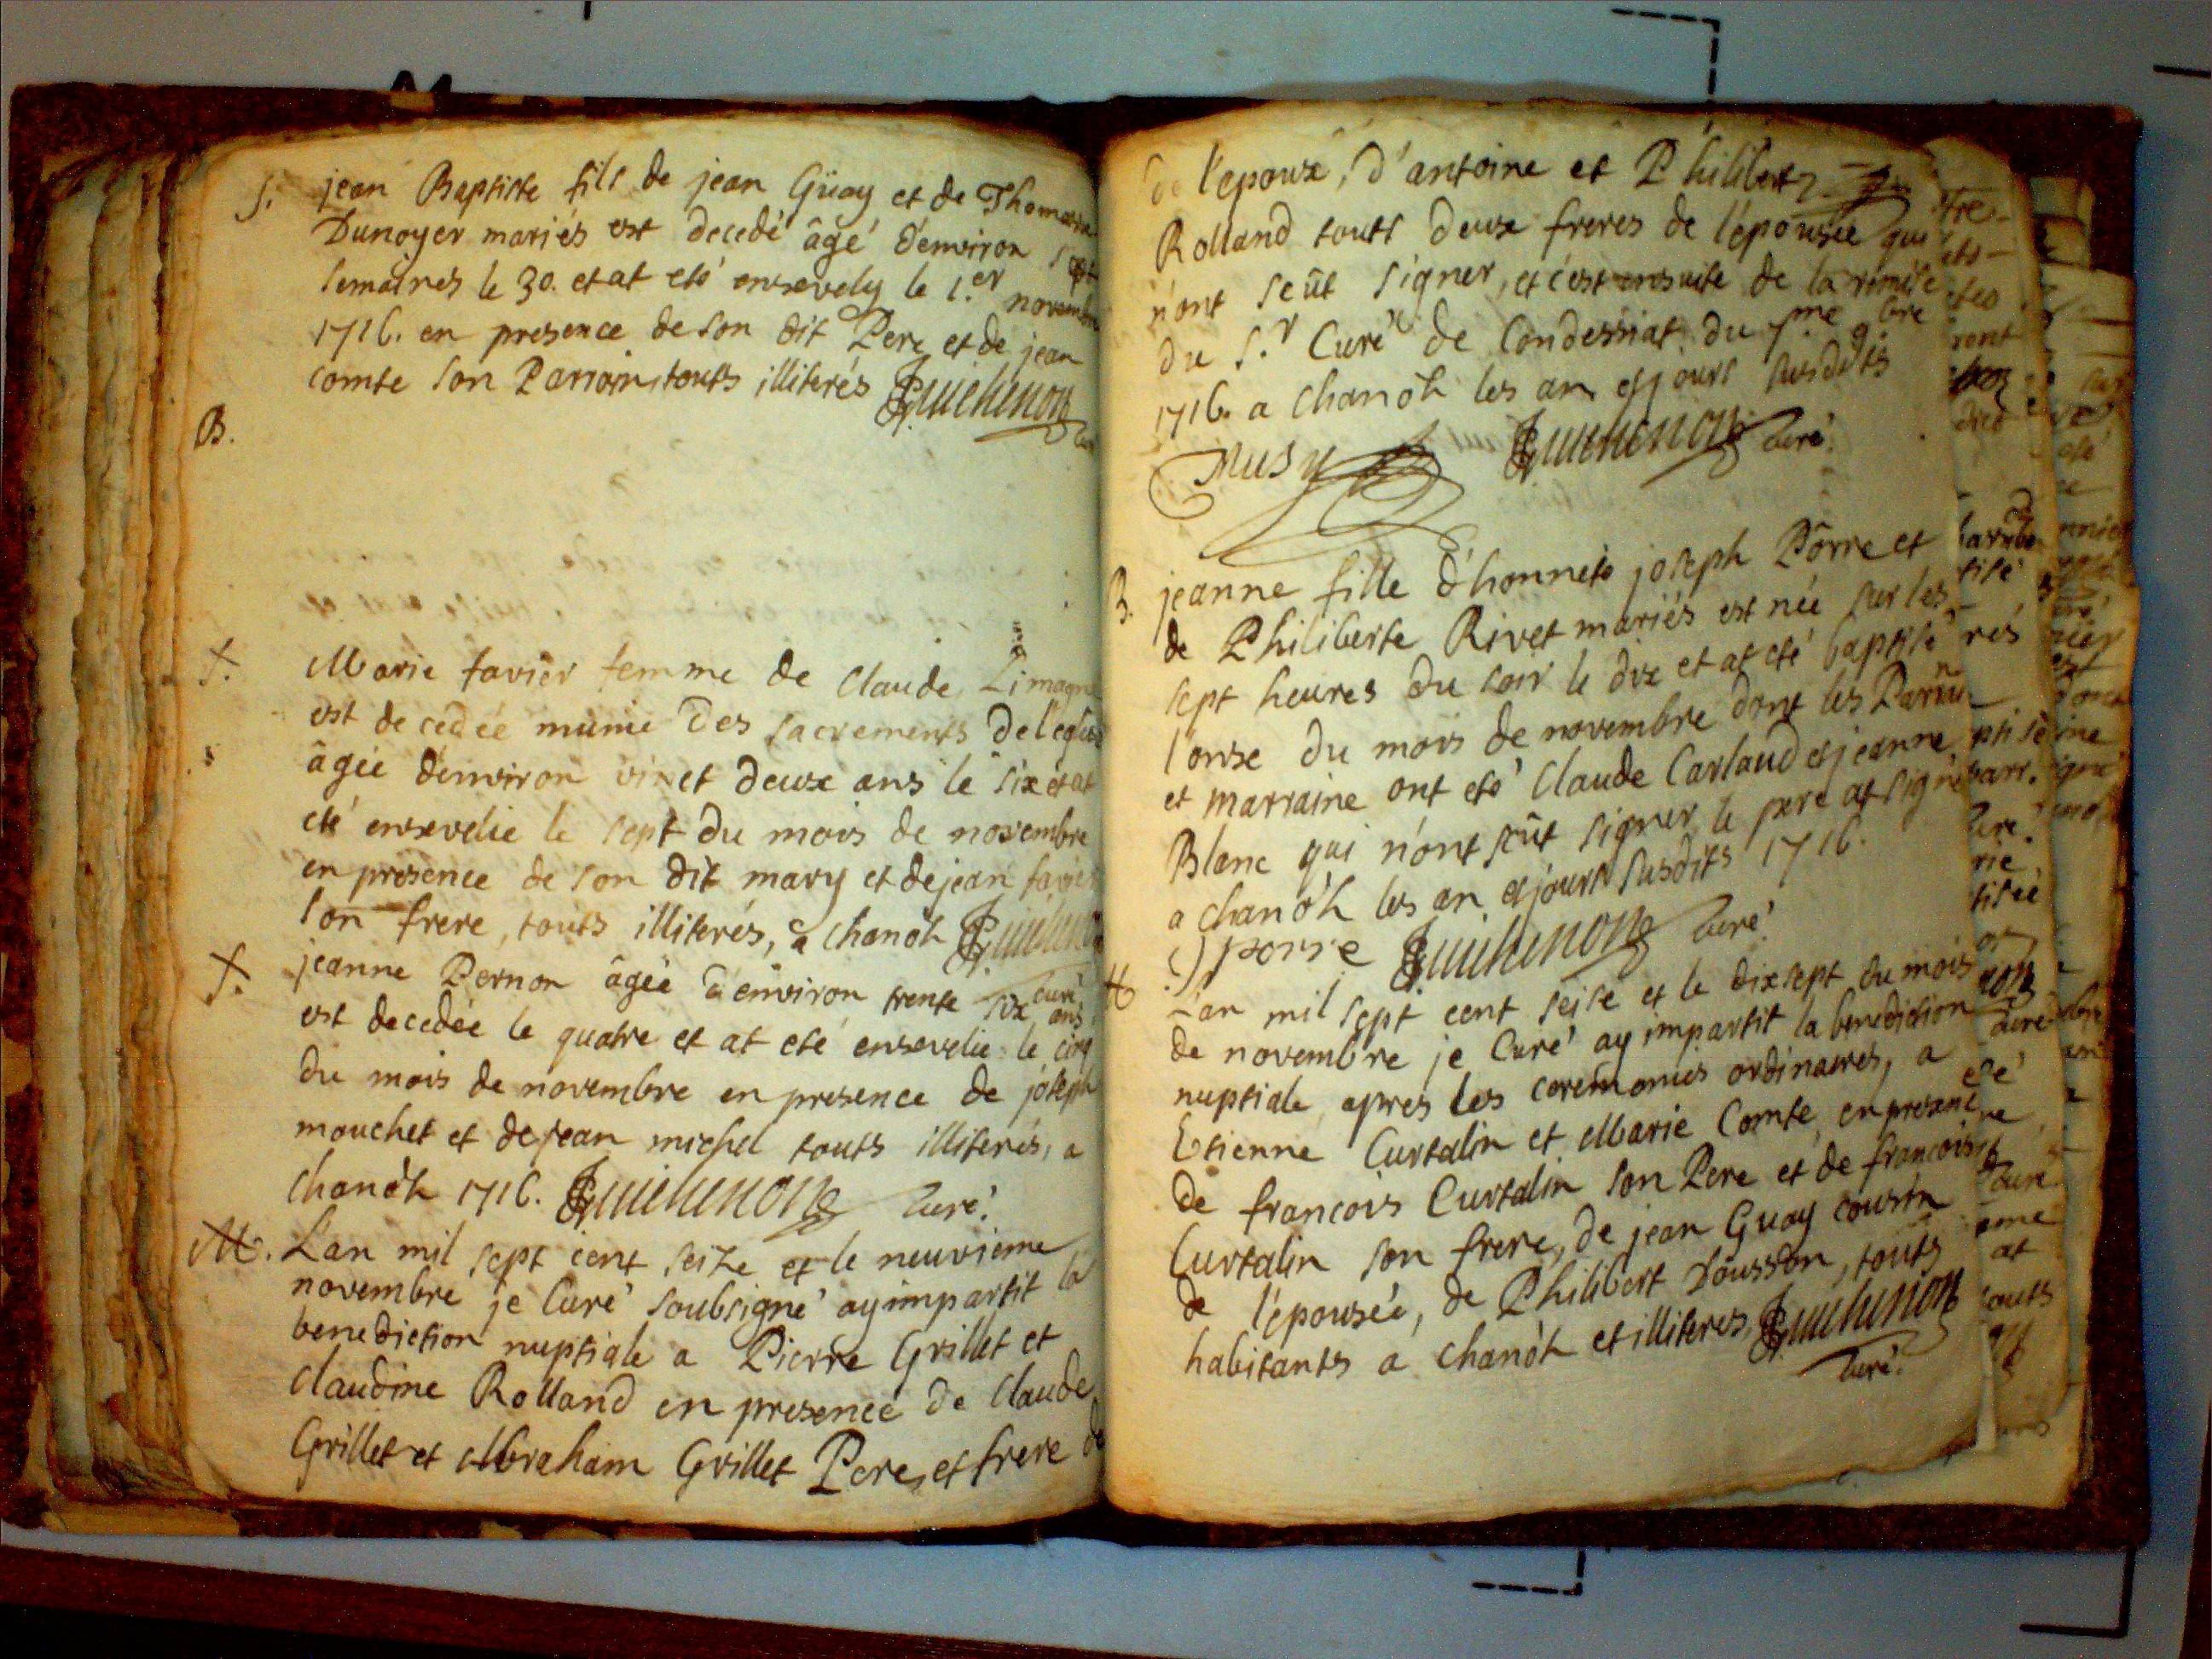 S. jean Baptiste fils de jean Güay et de Thomassa
Dunoyer mariés est decedé âgé d'environ sept
semaines le 30. et at eté ensevely le 1.er novembre
1716. en presence de son dit Pere et de jean
comte son Parrain, touts illiterés Guichenon
B.
S. Marie favier femme de Claude Limagne
est decedée munie des sacrements de l'eglise
âgée d'environ vint et deux ans le six et at
eté ensevelie le sept du mois de novembre
en presence de son dit mary et de jean favier
son frere, touts illiterés, a Chanôh Guichenon
curé
S. jeanne Pernon âgée d'environ trente six ans
est decedée le quatre et at eté ensevelie le cinq
du mois de novembre en presence de joseph
mouchet et de jean michel touts illiterés, a
Chanôh 1716. Guichenon Curé.
M. L'an mil sept cent seize et le neuvieme
novembre je Curé soubsigné ay impartit la
benediction nuptiale a Pierre Grillet et
Claudine Rolland en presence de Claude
Grillet et Abraham Grillet Pere, et frere de
de l'epoux, d'antoine et Philibert
Rolland touts deux freres de l'epousée qui
n'ont seût signer, et c'est ensuite de la remise
du S.r Curé de Condessiat du 7.me 9.bre
1716. a Chanôh les an et jours susdits
Musy Guichenon Curé.
B. jeanne fille d'honnete joseph Pôrre et
de Philiberte Rivet mariés est née sur les
sept heures du soir le dix et at eté baptisé
l'onse du mois de novembre dont les Parrain
et marraine ont eté Claude Carlaud et jeanne
Blanc qui n'ont sçût signer le pere at signé
a Chanôh les an et jours susdits 1716.
J porre Guichenon Curé.
M L'an mil sept cent seise et le dixsept du mois
de novembre je Curé ay impartit la benediction
nuptiale apres les ceremonies ordinaires, a
Etienne Curtalin et Marie Comte en presence
de francois Curtalin son Pere et de francois
Curtalin son frere, de jean Guay cousin
de l'epousée, de Philibert Dousson, touts
habitants a Chanôh et illiteres, Guichenon
Curé.